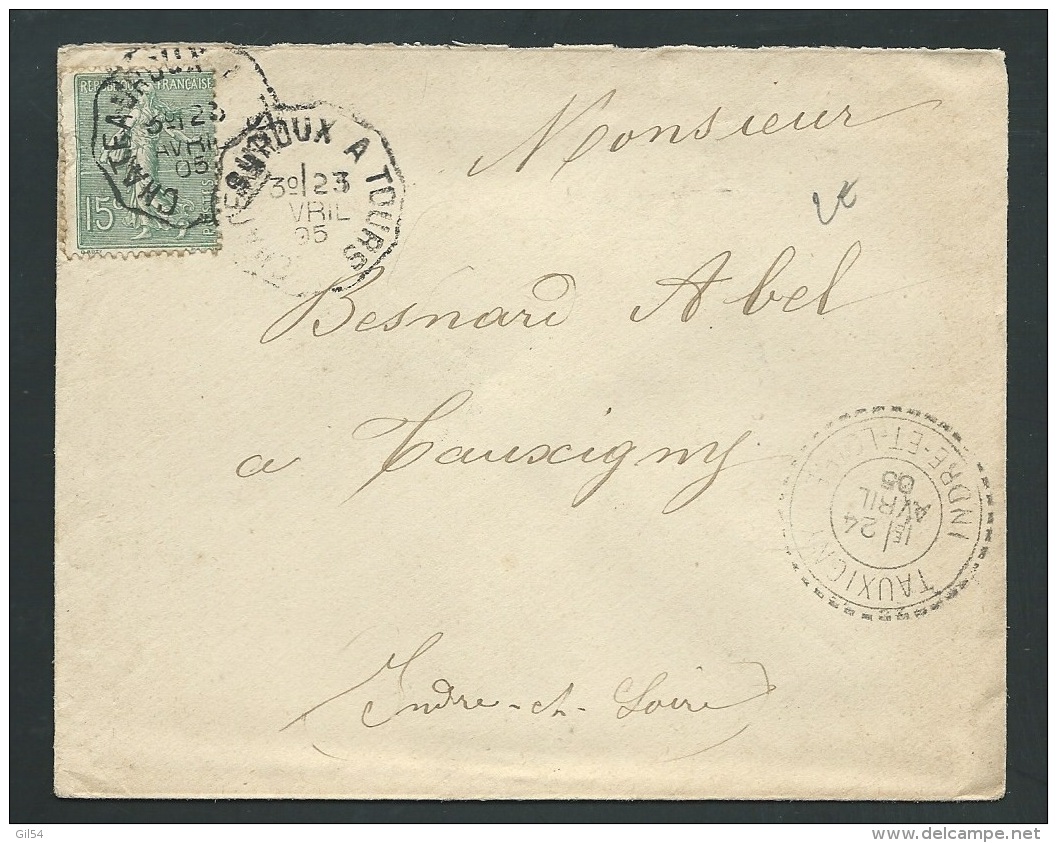 REPUBLIQUE FRANÇAISE
15
POSTES
CHATEAUROUX A
3º/23
AVRIL
05
CHATEAUROUX A TOURS
3º/23
VRIL
05
Monsieur
Besnard Abel
a Tauxigny
(Indre-et-Loire)
TAUXIGNY
INDRE-ET-LOIRE
1E/24
AVRIL
05
Gil54
www.delcampe.net